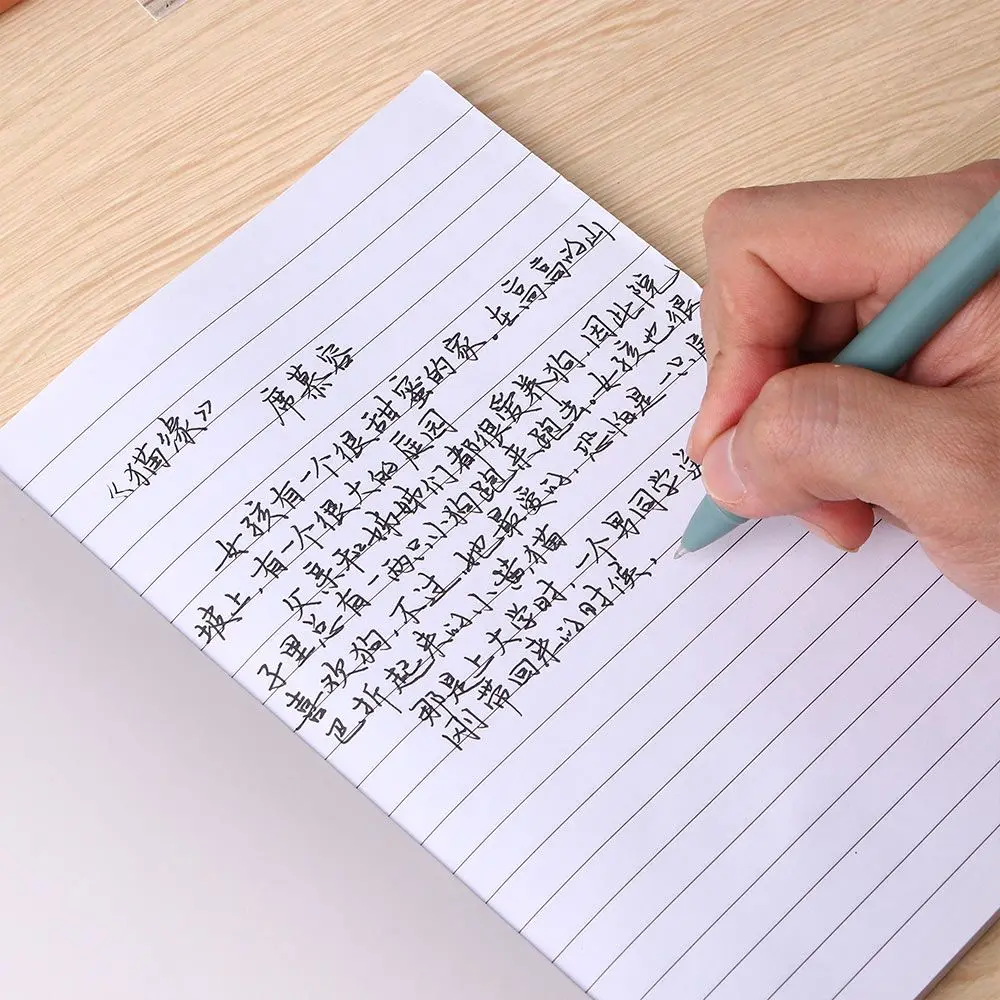 《猫缘》 席慕容
女孩有一个很甜蜜的家.在高高的山
坡上,有一个很大的庭园
父亲和姊姊们都很爱养狗.因此院
子里总有一两只小狗跑来跑去.女孩也很
喜欢狗,不过,她最爱的,恐怕是一只尾
巴折起来的小黄猫
那是上大学时,一个男同学
刚带回来的时候,